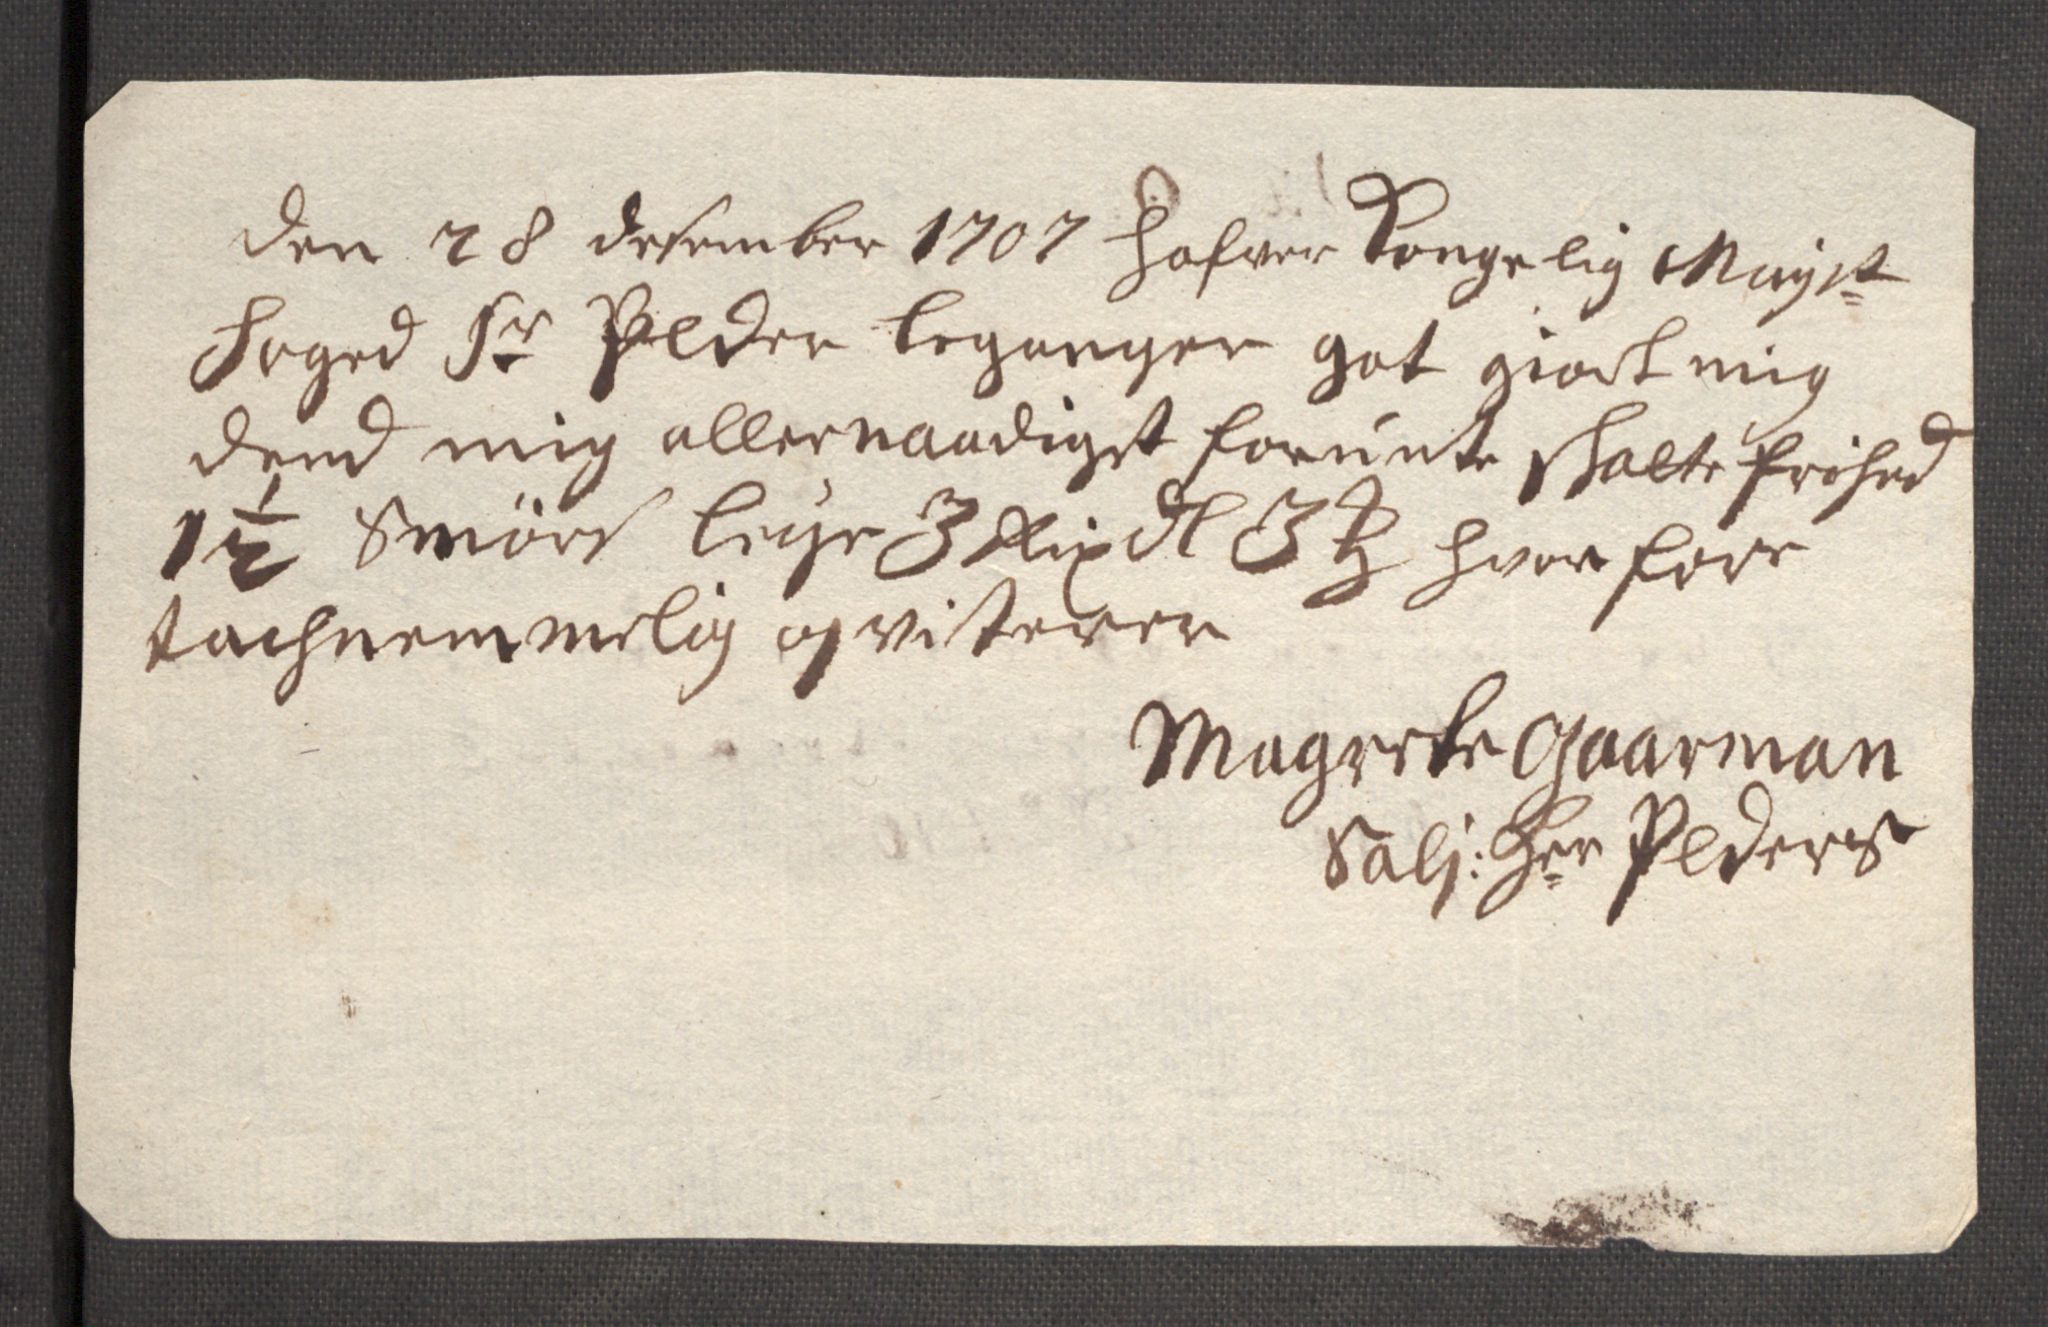 den 28 desember 1707 hafver Kongelig Mayst
foged Sr Peder leganger got giort mig
dend mig allernaadigst forunte skatte frihed
1½ Smörs leye 3 Rixdl 3 ß hvor fore
tachnemmelig qviterer
Magrete Gaarman
Salj: Her Peders